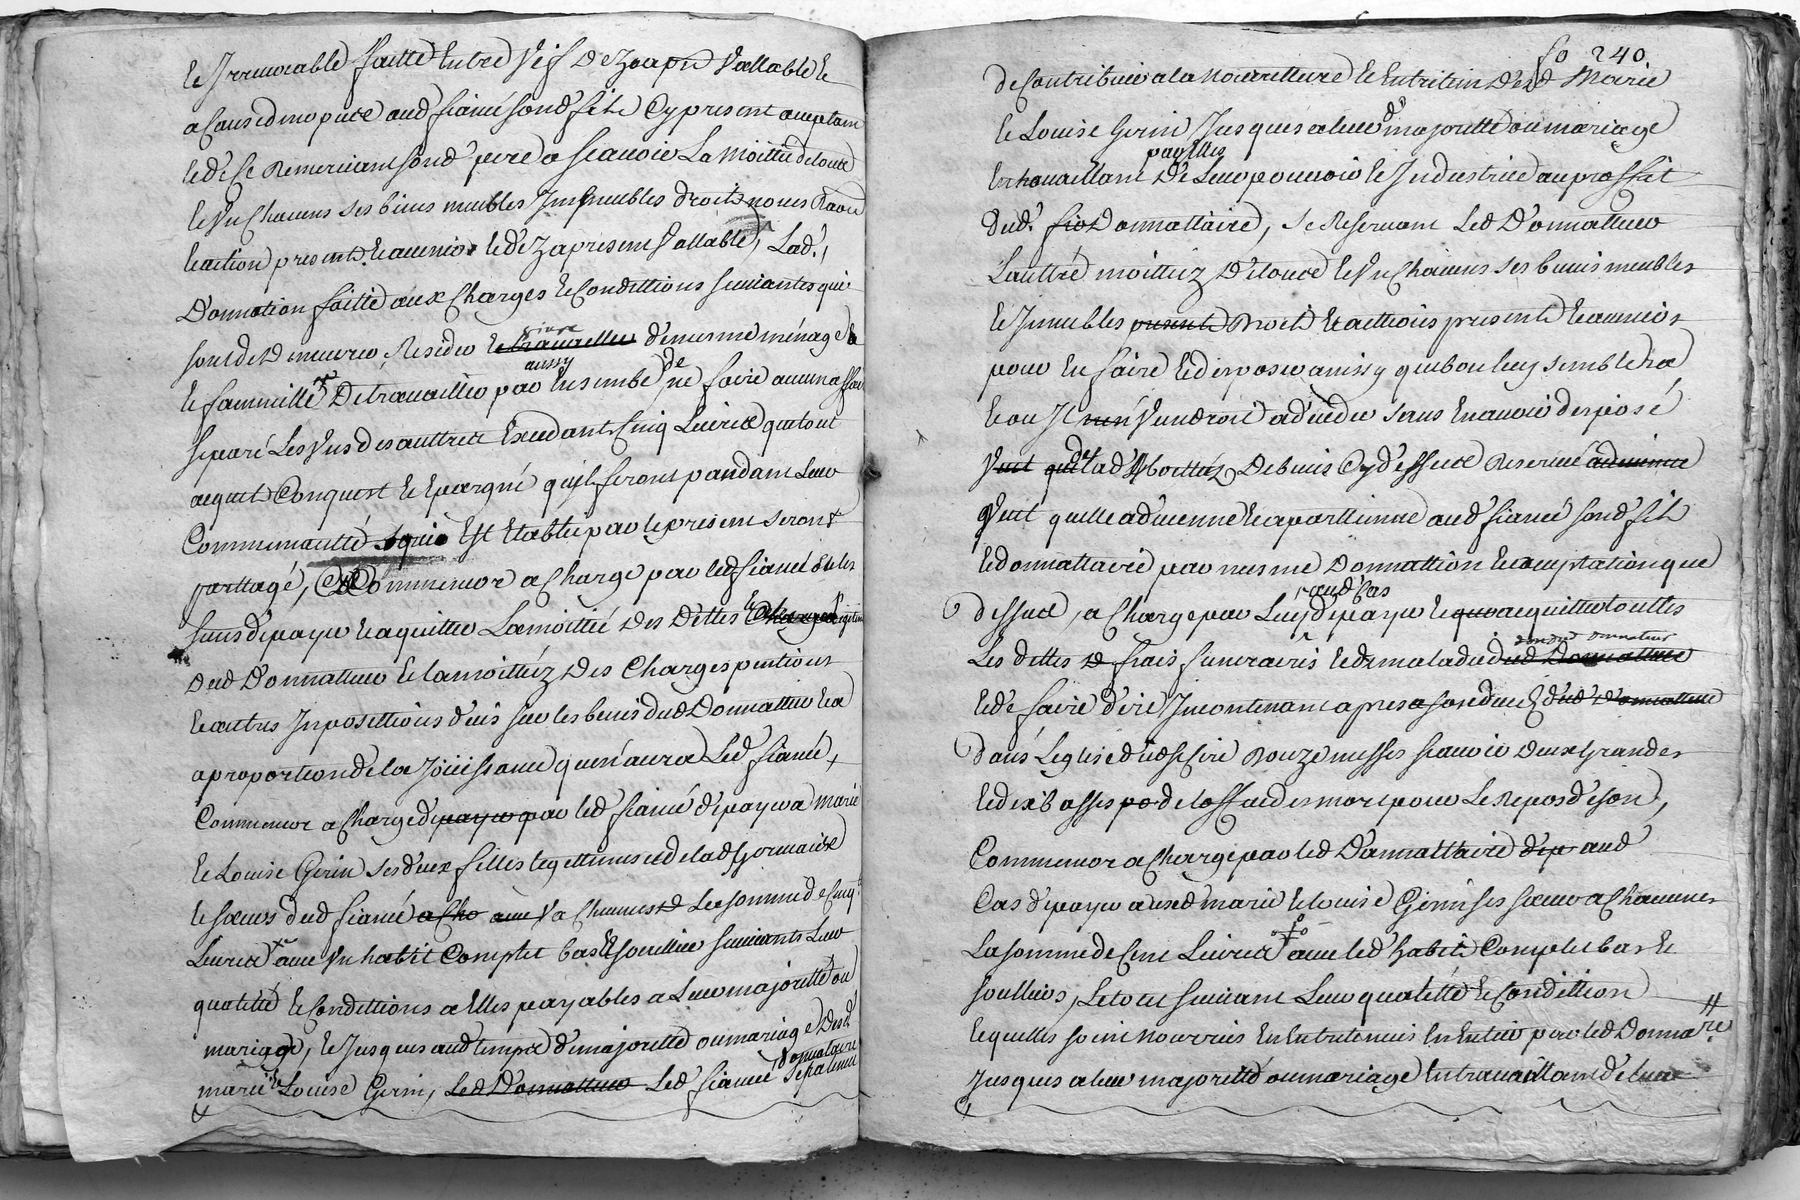 et Irrevocable faitte Entre Vif De Zapn Vallable et
a Cause d mo pure aud fiancé sond fils Cy present aceptant
led et Remerciant sond pere a scauoir La Moittié de toute
et Vn Chacuns ses biens meubles Immeubles droits noms Raon
et action presents et auenir et dé Zapresent Vallable, Lad.
Donnation faitte aux Charges et Condittions suiuantes qui
sont de Demeurer, Resider et trauailler viure d'en mesme ménage
et famille De trauailler par aussy Ensemble de ne faire aucun affaire
separé Les Vns des auttres Excedant Cinq Liures que tout
acquit Conquest et Epargné qu'jls feront pandant Leur
Communautté qui Est Etablie par le present seront
parttagé, Comme encor a Charge par led fiancé
suns de payer et aquitter La moittié Des Dettes
Dud Donnatteur et la moittiéz Des Charges pentions
et autres Jnposittions deüs sur les biens dud Donnatteur et a
a proportion de la Joüissance qu'en aura Led fiancé,
Comme encor a Charge de payer par led fiancé de payer a marie
et Louise Gerin ses deux filles legettimes et de lad Germaise
et sœurs dud fiancé a Cha aue a Chacune Le somme de Cinqt
Liures auec Vn habit Complet bas et soullier suiuants Leur
qualitté et Condittions a Elles payables a Leur majoritté ou
mariage, et Jusques aud temps de majoritté ou mariage Desd
marie et Louise Gerin, Led Donnatteur Led fiancé donnataire
fo 240.
de Contribuer a la nourritture et Entretien Desd Marie
et Louise Gerin Jusques a leurd majoritté ou mariage
En trauaillant par Elles De Leur pouuoir et Jndustrie au proffit
dud. fio Donnattaire, se Reseruant Led Donnatteur
L'auttre moittiez De toute et Vn Chacuns ses biens meubles
et Jmeubles presents Droits et acttions presents et auenir
pour En faire et disposer ainssy que bon luy semblera
et ou Jl n'en Viendroit a deceder sans En auoir disposé
Veut que lad Moittéz De biens Cy dessus Reserué aduienne
Veut quelle aduienne et apartienne aud fiancé sond fils
et donnattaire par mesme Donnattion et aceptation que
dessus, a Charge par Luy aud Cas de payer et que acquitter touttes
Les dettes et frais funeraires et de maladie dud Donnatteur dudit donnateur
et de faire dire Jncontinant apres son deces dud Donnatteur
dans L'eglise dud St Cire Douze messes scauoir deux Grandes
et dix basses de l'office des morts pour Le Repos de son,
Comme encor a Charge par led Donnattaire de p aud
Cas de payer ausd marie et Louise Gerin ses sœurs a Chacunes
La somme de Cent Liures auec led habit Complet bas et
soulliers, Le tout suiuant Leur qualitté et Condittion
lequelles soint nourries En Entretenuës En Entier par led Donna re
Jusques a leur majoritté ou mariage En trauaillant de leur